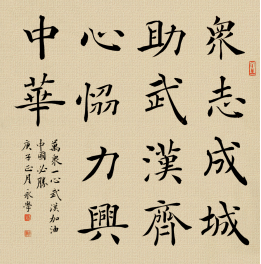 衆志成城
助武漢齊
心恊力興
中華
萬衆一心武漢加油
中國必勝
庚子正月永學